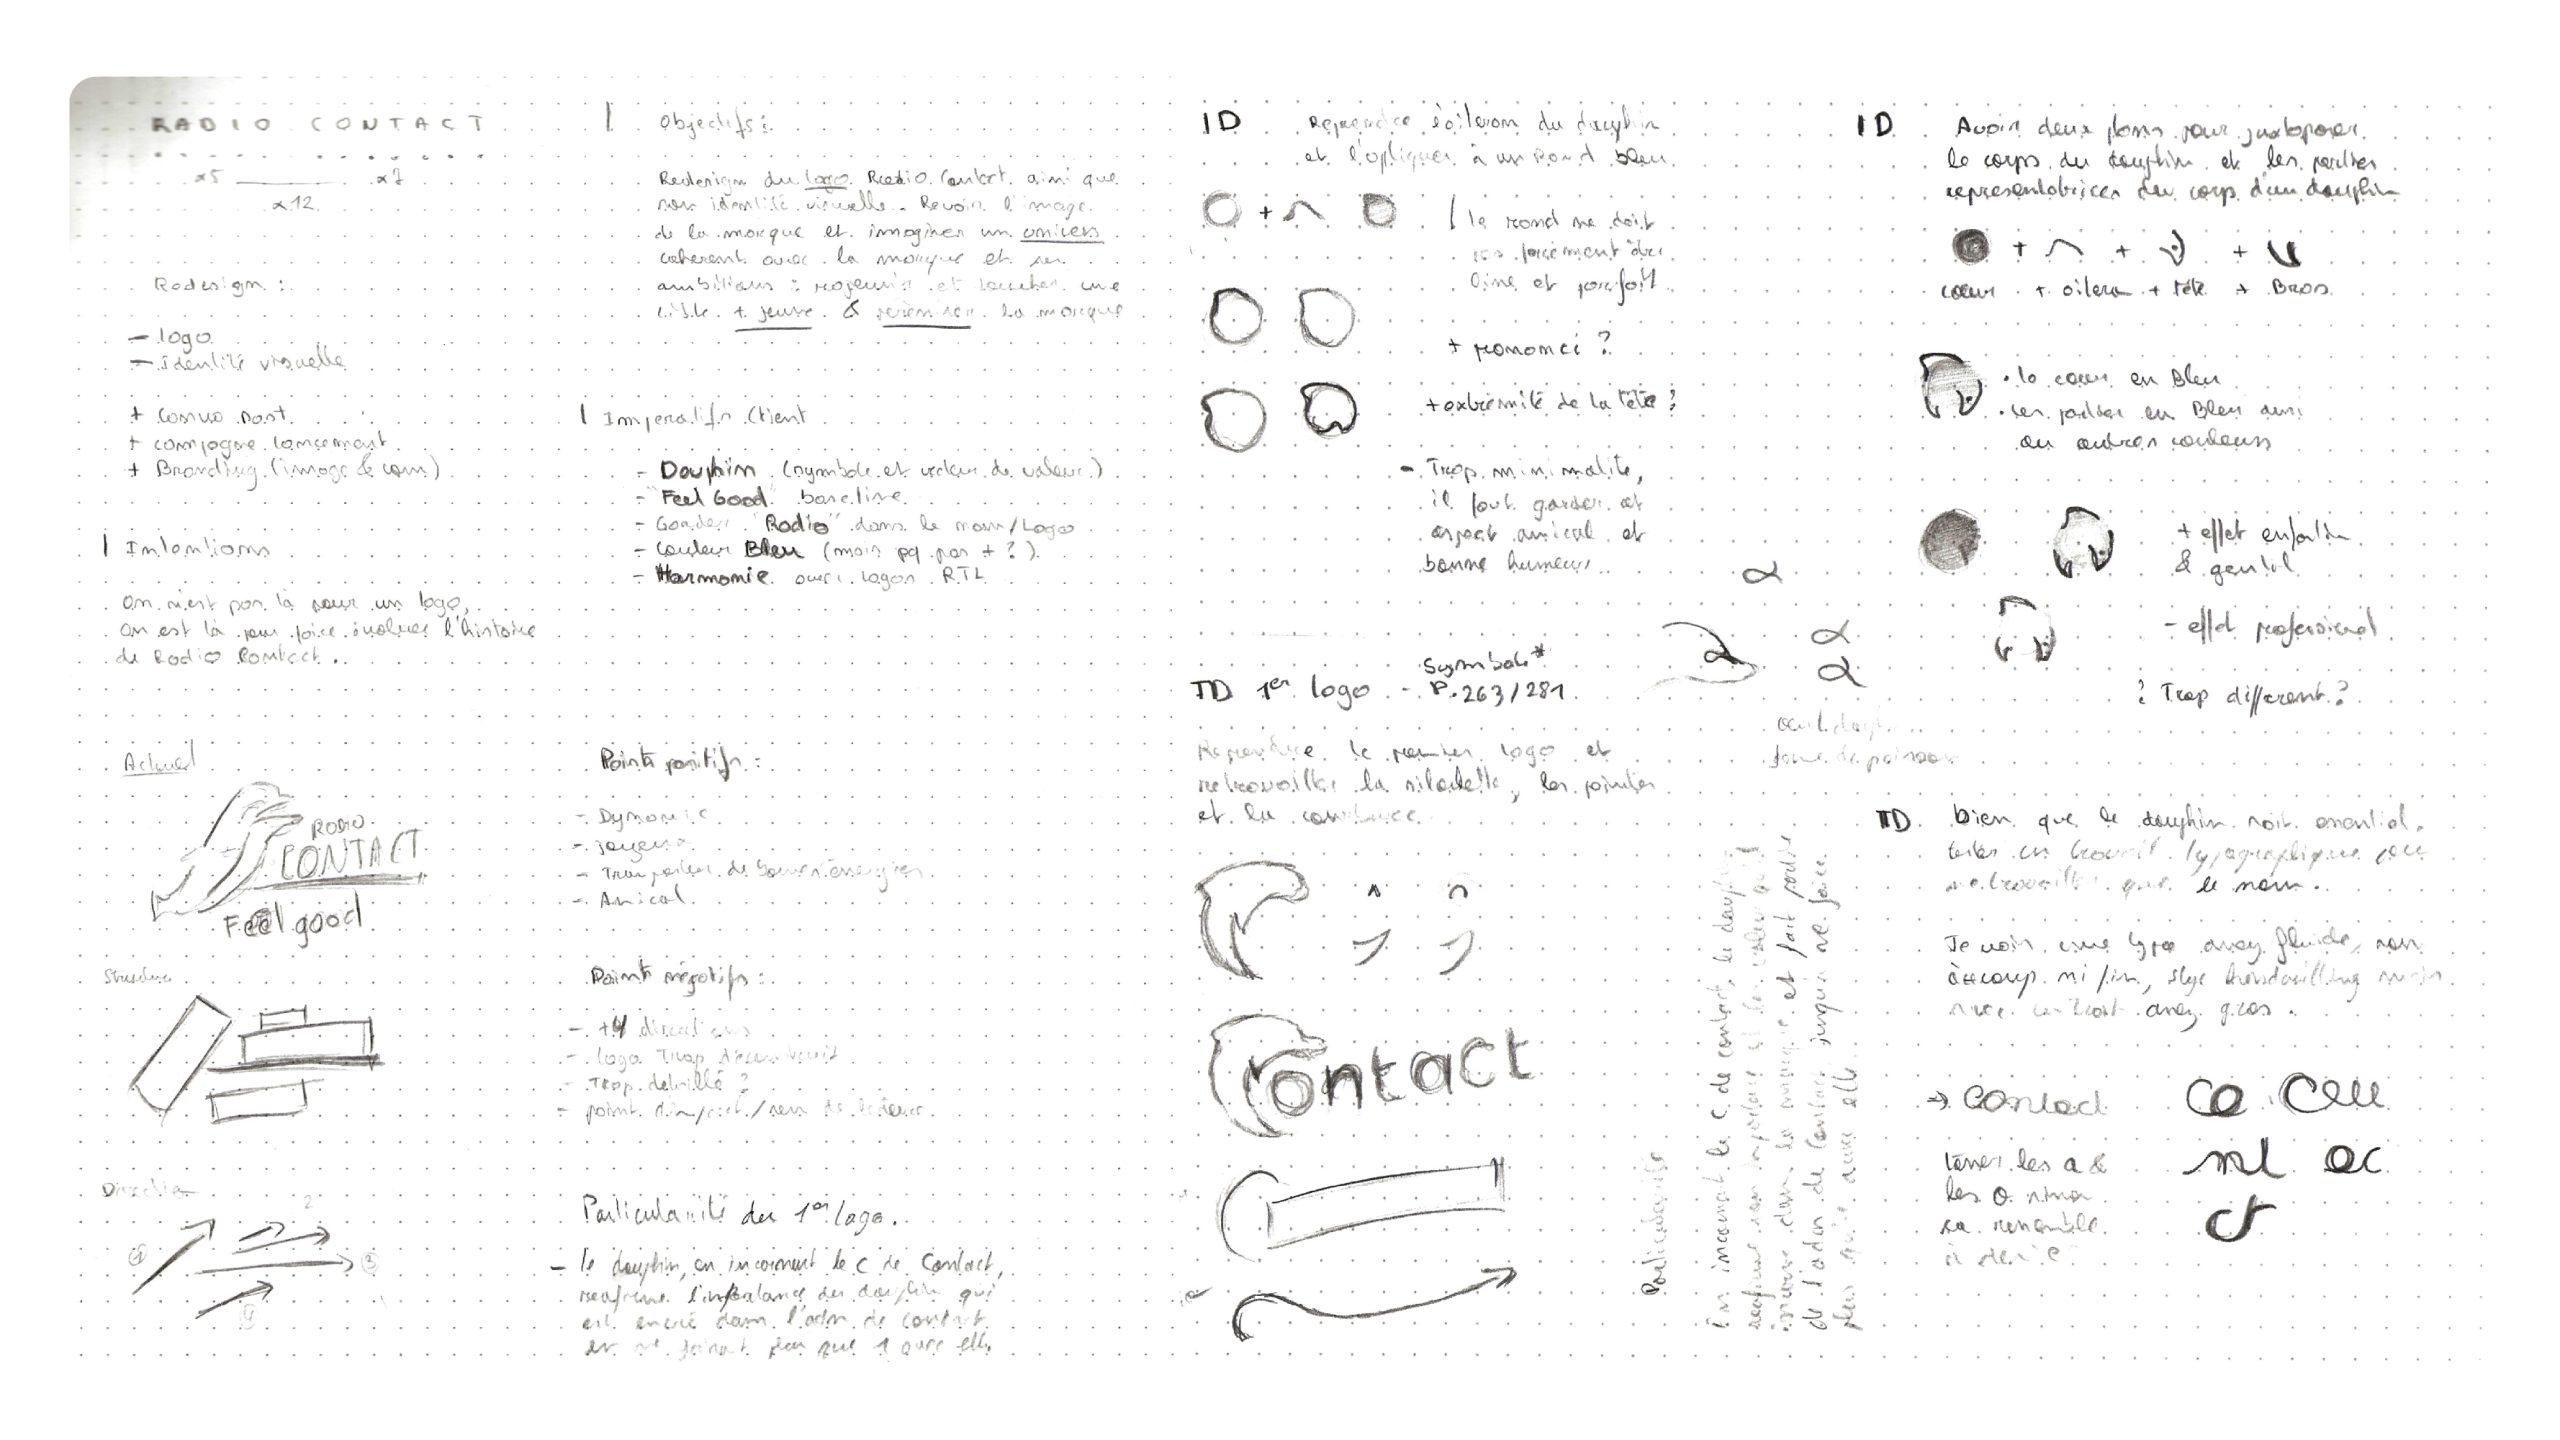 RADIO CONTACT
x5
x7
x12
Redesign :
- logo
- Identité visuelle
+ campagne lancement
+ Branding (image & com)
| Intentions
on n'est pas là pour un logo,
on est là pour faire évoluer l'histoire
de Radio Contact.
Actuel
RADIO
CONTACT
Feel good
Structure
Direction
1
2
3
4
| Objectifs :
Redesign du logo Radio Contact ainsi que
son identité visuelle. Revoir l'image
de la marque et imaginer un univers
cohérent avec la marque et ses
ambitions : rajeunir et toucher une
cible + jeune & la marque
| Imperatifs Client
- Dauphin (symbole et vecteur de valeur)
- "Feel Good" baseline
- Garder "Radio" dans le nom/Logo
- Couleur Bleu (mais pq pas + ?)
- Harmonie avec logos RTL
Points positifs :
- Dynamic
- joyeux
- Transporteur de bonnes énergies
- Amical
Points négatifs :
- +4 directions
- logo Trop
- Trop détaillé ?
- point / sens de lecture
Particularité du 1er logo.
- le dauphin, en incarnant le C de Contact,
l'importance du dauphin qui
est encré dans l'adn de contact
que 1 avec elle
ID Reprendre l'aileron du dauphin
et l'apliquer à un Rond bleu
+
| le rond ne doit
pas forcément être
line et parfait
+ prononcé ?
+ extrémité de la tête ?
- Trop minimaliste,
il faut garder cet
aspect amical et
bonne humeur
ID 1er logo - Symbole*
P.263/281
Reprendre le premier logo et
retravailler la silouette, les pointes
et la
ontact
Particularité
En incarnant le C de contact, le dauphin
son importance et les valeurs qu'il
incarne dans la marque et fait partie
de l'adn de Contact jusqu'à ne faire
plus qu'un avec elle
ID Avoir deux plans pour juxtaposer
le corps du dauphin et les parties
representatrices du corps d'un dauphin
+ + +
cœur + aileron + tête + Bras
• le cœur en Bleu
• les parties en Bleu aussi
ou autres couleurs
+ effet enfantin
& gentil
- effet professionel
? Trop different ?
ID bien que le dauphin soit essentiel,
un travail typographique
que le nom.
Je vois une typo assez fluide, sans
accoup ni fin, style handwriting mais
avec un trait assez gros.
→ Contact
co
nt ac
ct
les a &
les o sinon
ça ressemble
à des e